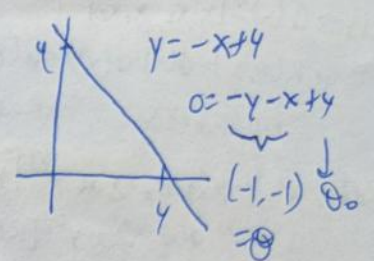 4
y = -x+4
0 = -y-x+4
4
(-1,-1) θ₀
=θ